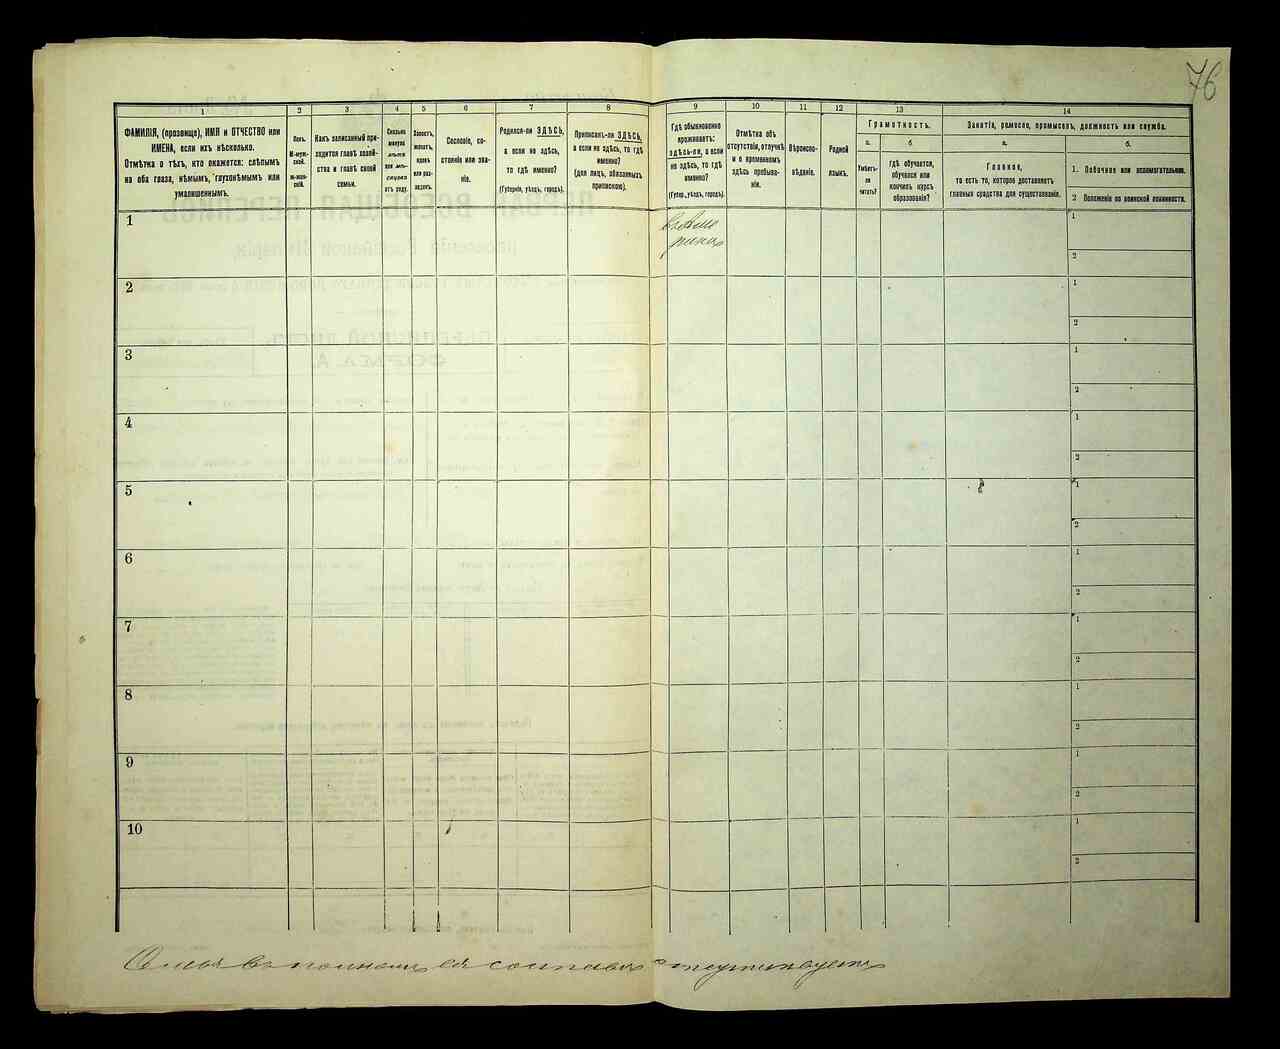 76
1
2
3
4
5
6
7
8
9
10
11
12
13
14
ФАМИЛІЯ, (прозвище), ИМЯ и ОТЧЕСТВО или
ИМЕНА, если ихъ нѣсколько.
Отмѣтка о тѣхъ, кто окажется: слѣпымъ
на оба глаза, нѣмымъ, глухонѣмымъ или
умалишеннымъ.
Полъ.
М-муж-
ской.
Ж-жен-
скій.
Какъ записанный при-
ходится главѣ хозяй-
ства и главѣ своей
семьи.
Сколько
минуло
лѣтъ
или мѣ-
сяцевъ
отъ роду.
Сословіе, со-
стояніе или зва-
ніе.
Родился-ли ЗДѢСЬ,
а если не здѣсь,
то гдѣ именно?
(Губернія, уѣздъ, городъ).
Приписанъ-ли ЗДѢСЬ,
а если не здѣсь, то гдѣ
именно?
(для лицъ, обязанныхъ
припискою).
Гдѣ обыкновенно
проживаетъ:
здѣсь-ли, а если
не здѣсь, то гдѣ
именно?
(Губер., уѣздъ, городъ).
Отмѣтка объ
отсутствіи, отлучкѣ
и о временномъ
здѣсь пребыва-
ніи.
Вѣроиспо-
вѣданіе.
Родной
языкъ.
Грамотность.
а.
б.
Умѣетъ-
ли
читать?
Гдѣ обучается,
обучался или
кончилъ курсъ
образованія?
Занятіе, ремесло, промыселъ, должность или служба.
а.
б.
Главное,
то есть то, которое доставляетъ
главныя средства для существованія.
1. Побочное или вспомогательное.
2 Положеніе по воинской повинности.
1
1
2
2
1
2
3
1
2
4
1
2
5
1
2
6
1
2
7
1
2
8
1
2
9
1
2
10
1
2
въ Аме
рикѣ
Семья въ полномъ ея составѣ отсутствуетъ